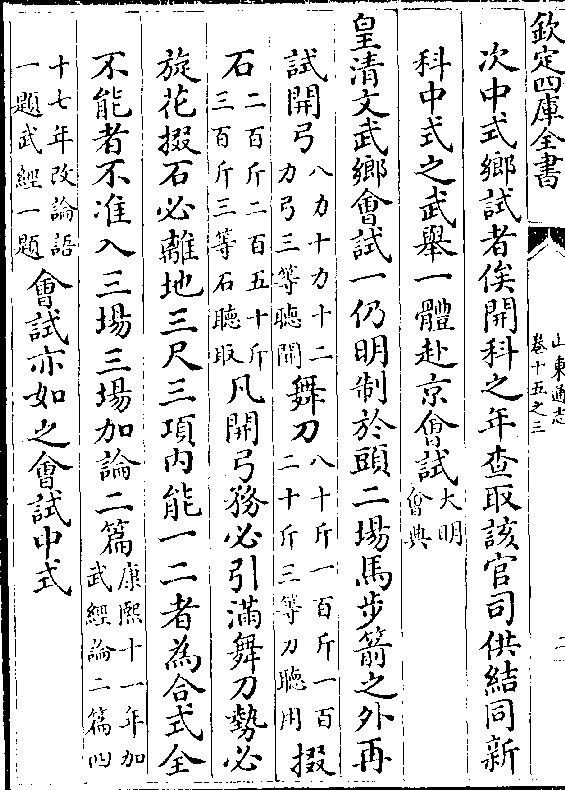 欽定四庫全書
山東通志
卷十五之三
二
次中式鄉試者俟開科之年查取該官司供結同新
科中式之武舉一體赴京會試大明
會典
皇清文武鄉會試一仍明制於頭二場馬步箭之外再
試開弓八力十力十二
力弓三等聽開舞刀八十斤一百斤一百
二十斤三等刀聽用掇
石二百斤二百五十斤
三百斤三等石聽取凡開弓務必引滿舞刀勢必
旋花掇石必離地三尺三項内能一二者為合式全
不能者不准入三場三場加論二篇康熙十一年加
武經論二篇四
十七年改論語
一題武經一題會試亦如之會試中式